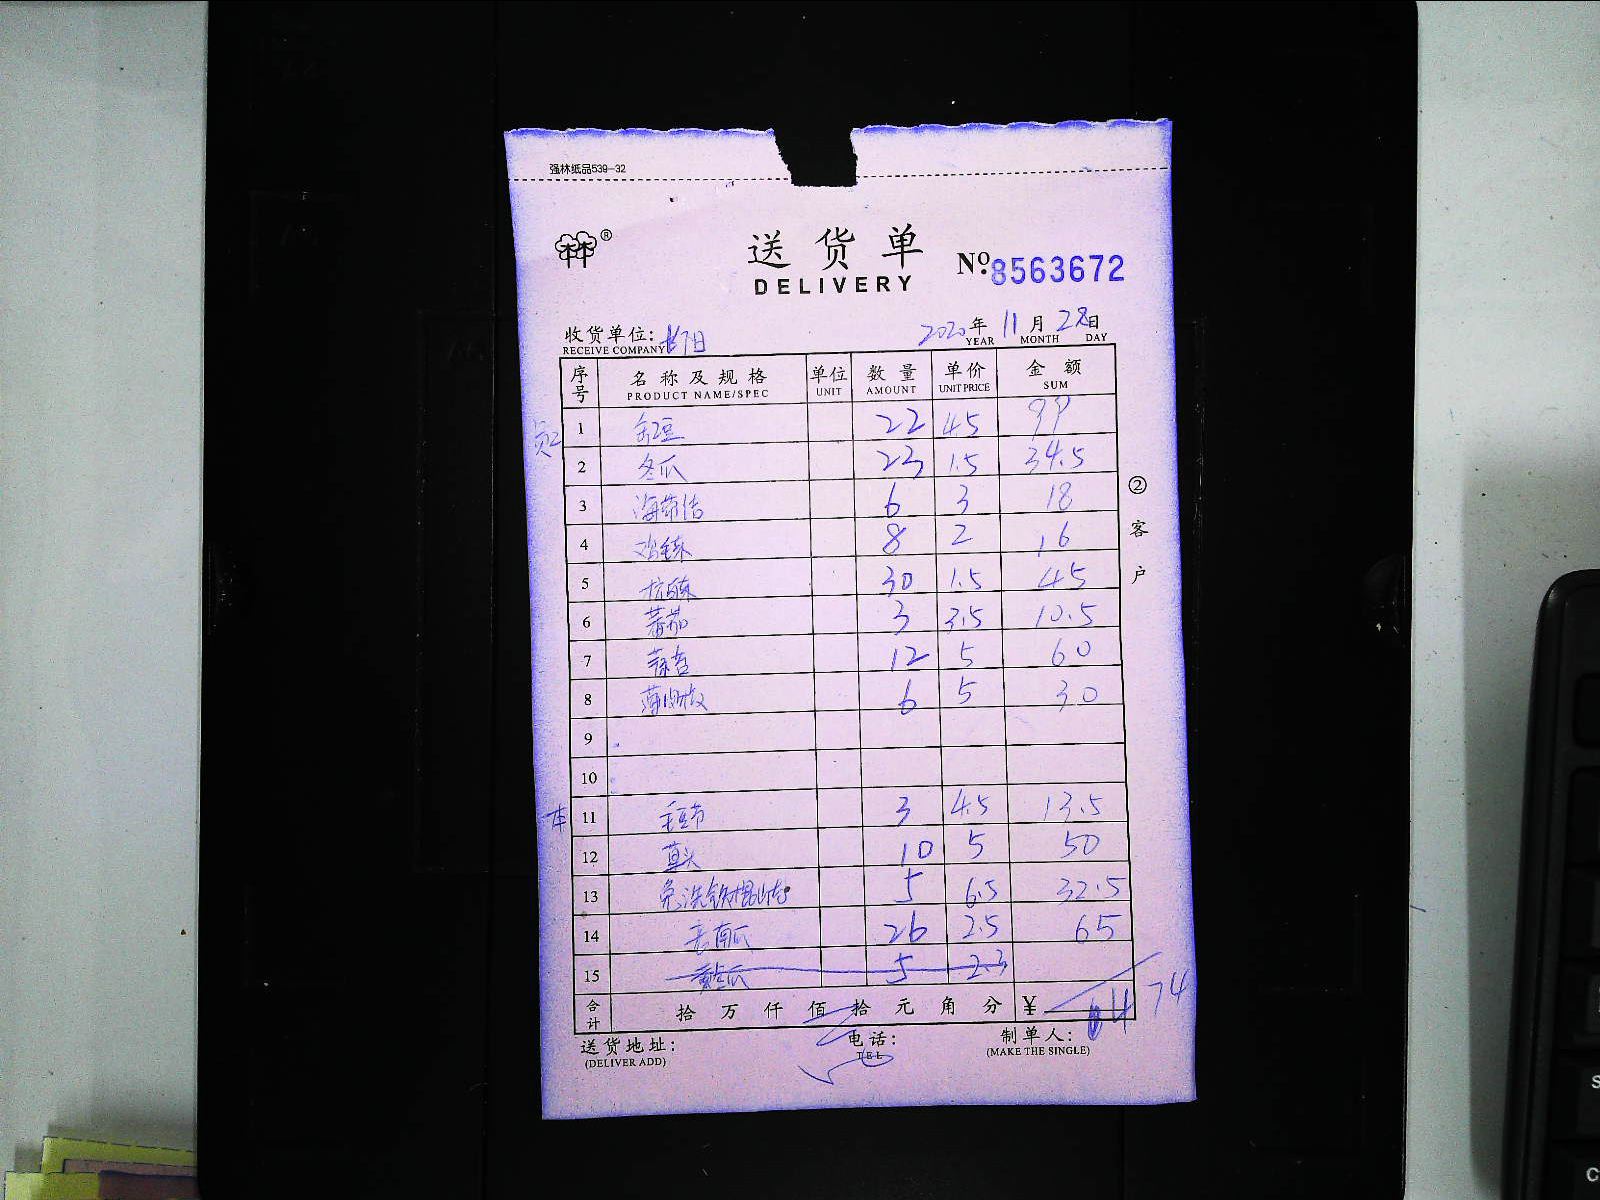 强林纸品539-32
林® 送货单 №:8563672
DELIVERY
收货单位: 2020年 11月 28日
RECEIVE COMPANY YEAR MONTH DAY
序号 名称及规格 单位 数量 单价 金额
PRODUCT NAME/SPEC UNIT AMOUNT UNIT PRICE SUM
1 22 4.5 99
2 冬瓜 23 1.5 34.5
3 海带结 6 3 18
4 8 2 16
5 30 1.5 45
6 蕃茄 3 3.5 10.5
7 12 5 60
8 6 5 30
9
10
11 3 4.5 13.5
12 草头 10 5 50
13 免洗铁棍山药 5 6.5 32.5
14 老南瓜 26 2.5 65
15 5 2.3
合计 拾 万 仟 佰 拾 元 角 分 ¥ 474
②客户
送货地址: 电话: 制单人:
(DELIVER ADD) TEL (MAKE THE SINGLE)